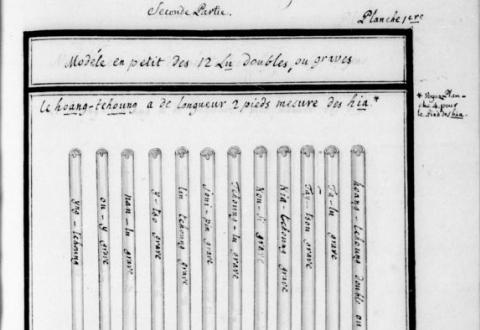 Seconde Partie.
Planche 1ere
Modéle en petit des 12 Lu doubles, ou graves
le hoang-tchoung a de longueur 2 pieds mesure des hia*
* Voyez Plan-
che 4 pour
le pied des hia.
yng-tchoung
ou-y grave
nan-lu grave
y-tsé grave
lin tchoung grave
joui-pin grave
Tchoung-lu grave
Kou-si grave
Kia-tchoung grave
Tay-tsou grave
Ta-lu grave
hoang-tchoung double ou